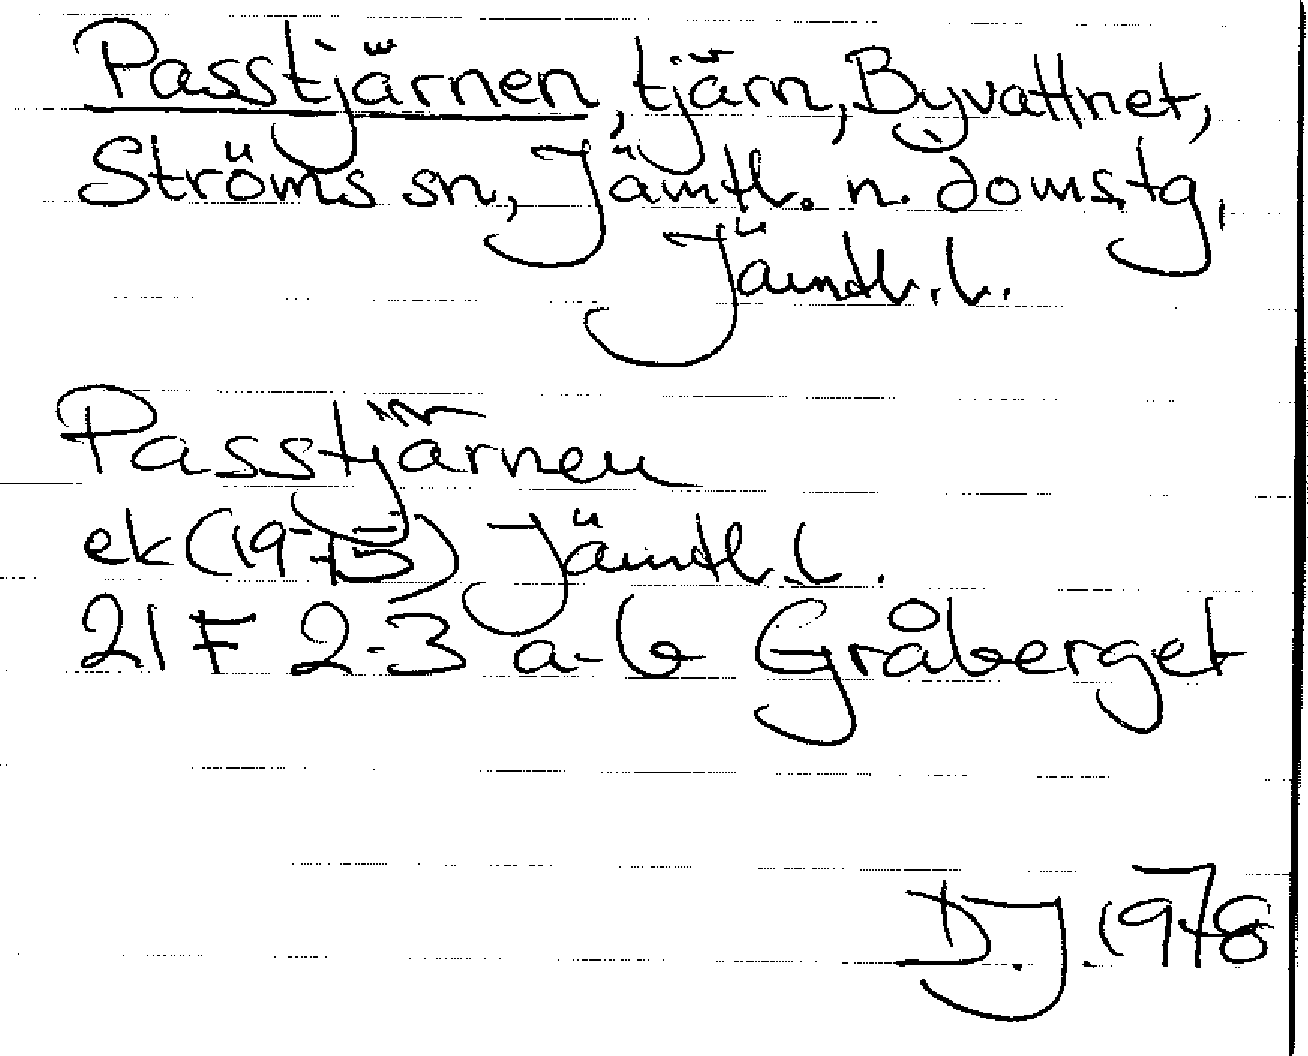 Passtjärnen, tjärn, Byvattnet,
Ströms sn, Jämtl. n. doms.tg,
Jämtl. l.
Passtjärnen
ek (1975) Jämtl. l.
21 F 2-3 a-b Gråberget
D.J. 1978